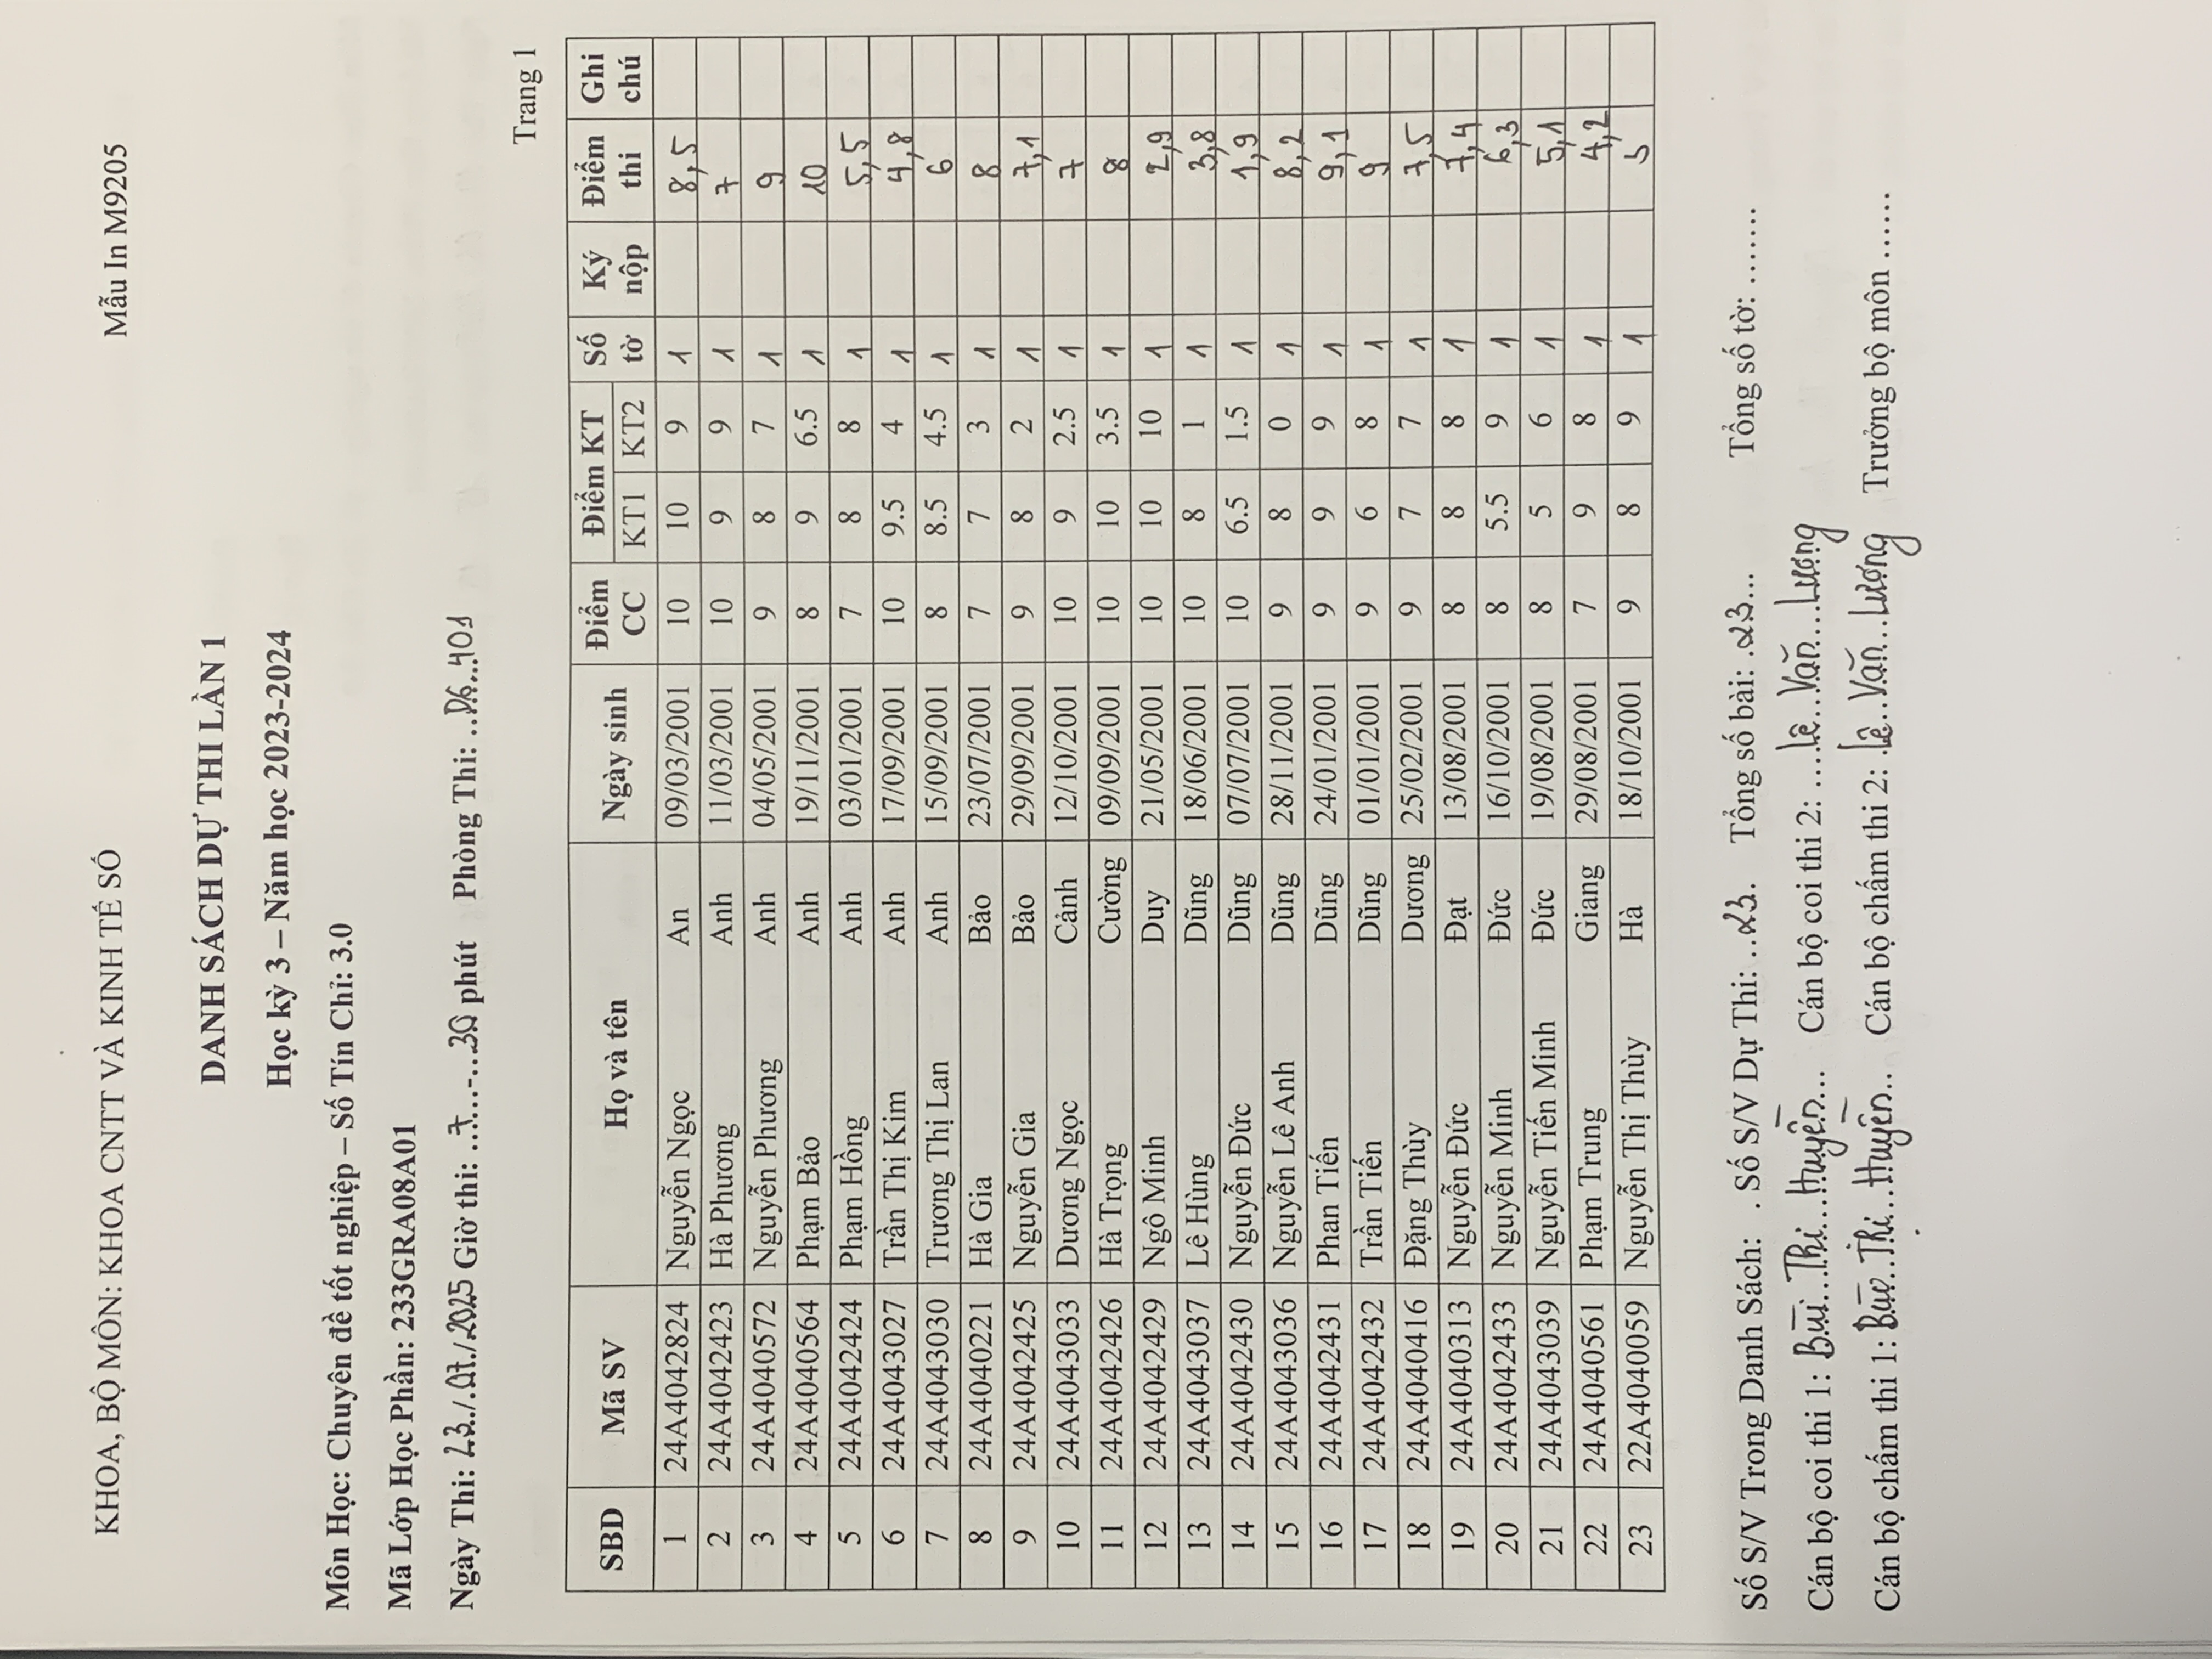 KHOA, BỘ MÔN: KHOA CNTT VÀ KINH TẾ SỐ Mẫu In M9205
DANH SÁCH DỰ THI LẦN 1
Học kỳ 3 – Năm học 2023-2024
Môn Học: Chuyên đề tốt nghiệp – Số Tín Chỉ: 3.0
Mã Lớp Học Phần: 233GRA08A01
Ngày Thi: 23../.07./2025 Giờ thi: ..7...-...30 phút Phòng Thi: ..D6...401
Trang 1
SBD Mã SV Họ và tên Ngày sinh Điểm CC Điểm KT KT1 KT2 Số tờ Ký nộp Điểm thi Ghi chú
1 24A4042824 Nguyễn Ngọc An 09/03/2001 10 10 9 1 8,5
2 24A4042423 Hà Phương Anh 11/03/2001 10 9 9 1 7
3 24A4040572 Nguyễn Phương Anh 04/05/2001 9 8 7 1 9
4 24A4040564 Phạm Bảo Anh 19/11/2001 8 9 6.5 1 10
5 24A4042424 Phạm Hồng Anh 03/01/2001 7 8 8 1 5,5
6 24A4043027 Trần Thị Kim Anh 17/09/2001 10 9.5 4 1 4,8
7 24A4043030 Trương Thị Lan Anh 15/09/2001 8 8.5 4.5 1 6
8 24A4040221 Hà Gia Bảo 23/07/2001 7 7 3 1 8
9 24A4042425 Nguyễn Gia Bảo 29/09/2001 9 8 2 1 7,1
10 24A4043033 Dương Ngọc Cảnh 12/10/2001 10 9 2.5 1 7
11 24A4042426 Hà Trọng Cường 09/09/2001 10 10 3.5 1 8
12 24A4042429 Ngô Minh Duy 21/05/2001 10 10 10 1 2,9
13 24A4043037 Lê Hùng Dũng 18/06/2001 10 8 1 1 3,8
14 24A4042430 Nguyễn Đức Dũng 07/07/2001 10 6.5 1.5 1 1,9
15 24A4043036 Nguyễn Lê Anh Dũng 28/11/2001 9 8 0 1 8,2
16 24A4042431 Phan Tiến Dũng 24/01/2001 9 9 9 1 9,1
17 24A4042432 Trần Tiến Dũng 01/01/2001 9 6 8 1 9
18 24A4040416 Đặng Thùy Dương 25/02/2001 9 7 7 1 7,5
19 24A4040313 Nguyễn Đức Đạt 13/08/2001 8 8 8 1 7,4
20 24A4042433 Nguyễn Minh Đức 16/10/2001 8 5.5 9 1 6,3
21 24A4043039 Nguyễn Tiến Minh Đức 19/08/2001 8 5 6 1 5,1
22 24A4040561 Phạm Trung Giang 29/08/2001 7 9 8 1 4,2
23 22A4040059 Nguyễn Thị Thùy Hà 18/10/2001 9 8 9 1 5
Số S/V Trong Danh Sách: . Số S/V Dự Thi: ..23. Tổng số bài: .23... Tổng số tờ: .......
Cán bộ coi thi 1: Bùi...Thị...Huyền... Cán bộ coi thi 2: ....Lê..Văn...Lượng
Cán bộ chấm thi 1: Bùi...Thị...Huyền.. Cán bộ chấm thi 2: .Lê..Văn...Lượng Trưởng bộ môn ......